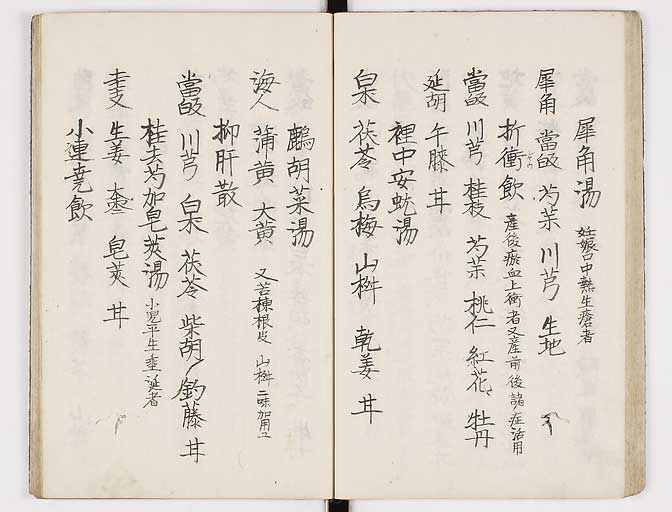 犀角湯 妊娠口中熱生瘡者
犀角 當皈 芍薬 川芎 生地
折衝飲 産後瘀血上衝者又産前後諸症活用
當皈 川芎 桂枝 芍薬 桃仁 紅花 牡丹
延胡 午膝 甘
裡中安蚘湯
白朮 茯苓 烏梅 山椒 乾姜 甘
鷓胡菜湯
海人 蒲黄 大黄 又苦楝根皮 山椒 二味加用ス
抑肝散
當皈 川芎 白朮 茯苓 柴胡 釣藤 甘
桂去芍加皂莢湯 小児平生垂涎者
桂支 生姜 大棗 皂莢 甘
小連堯飲